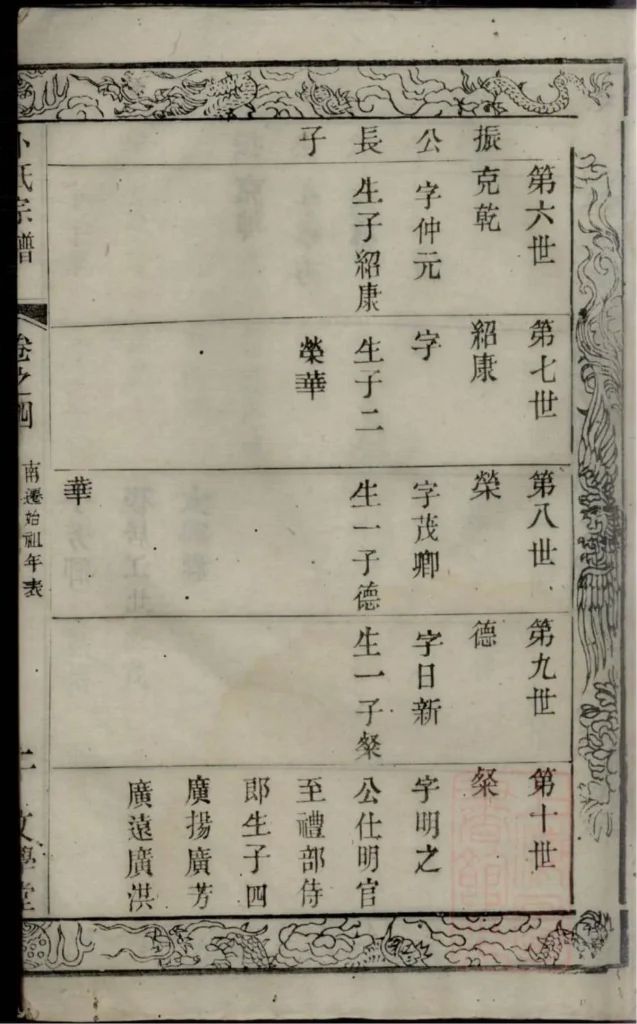 振公長子
第六世
克乾
字仲元
生子紹康
第七世
紹康
字
生子二
榮華
第八世
榮
字茂卿
生一子德
華
第九世
德
字日新
生一子粲
第十世
粲
字明之
公仕明官
至禮部侍
郎生子四
廣揚廣芳
廣遠廣洪
氏宗譜
卷之四
南遷始祖年表
文學堂